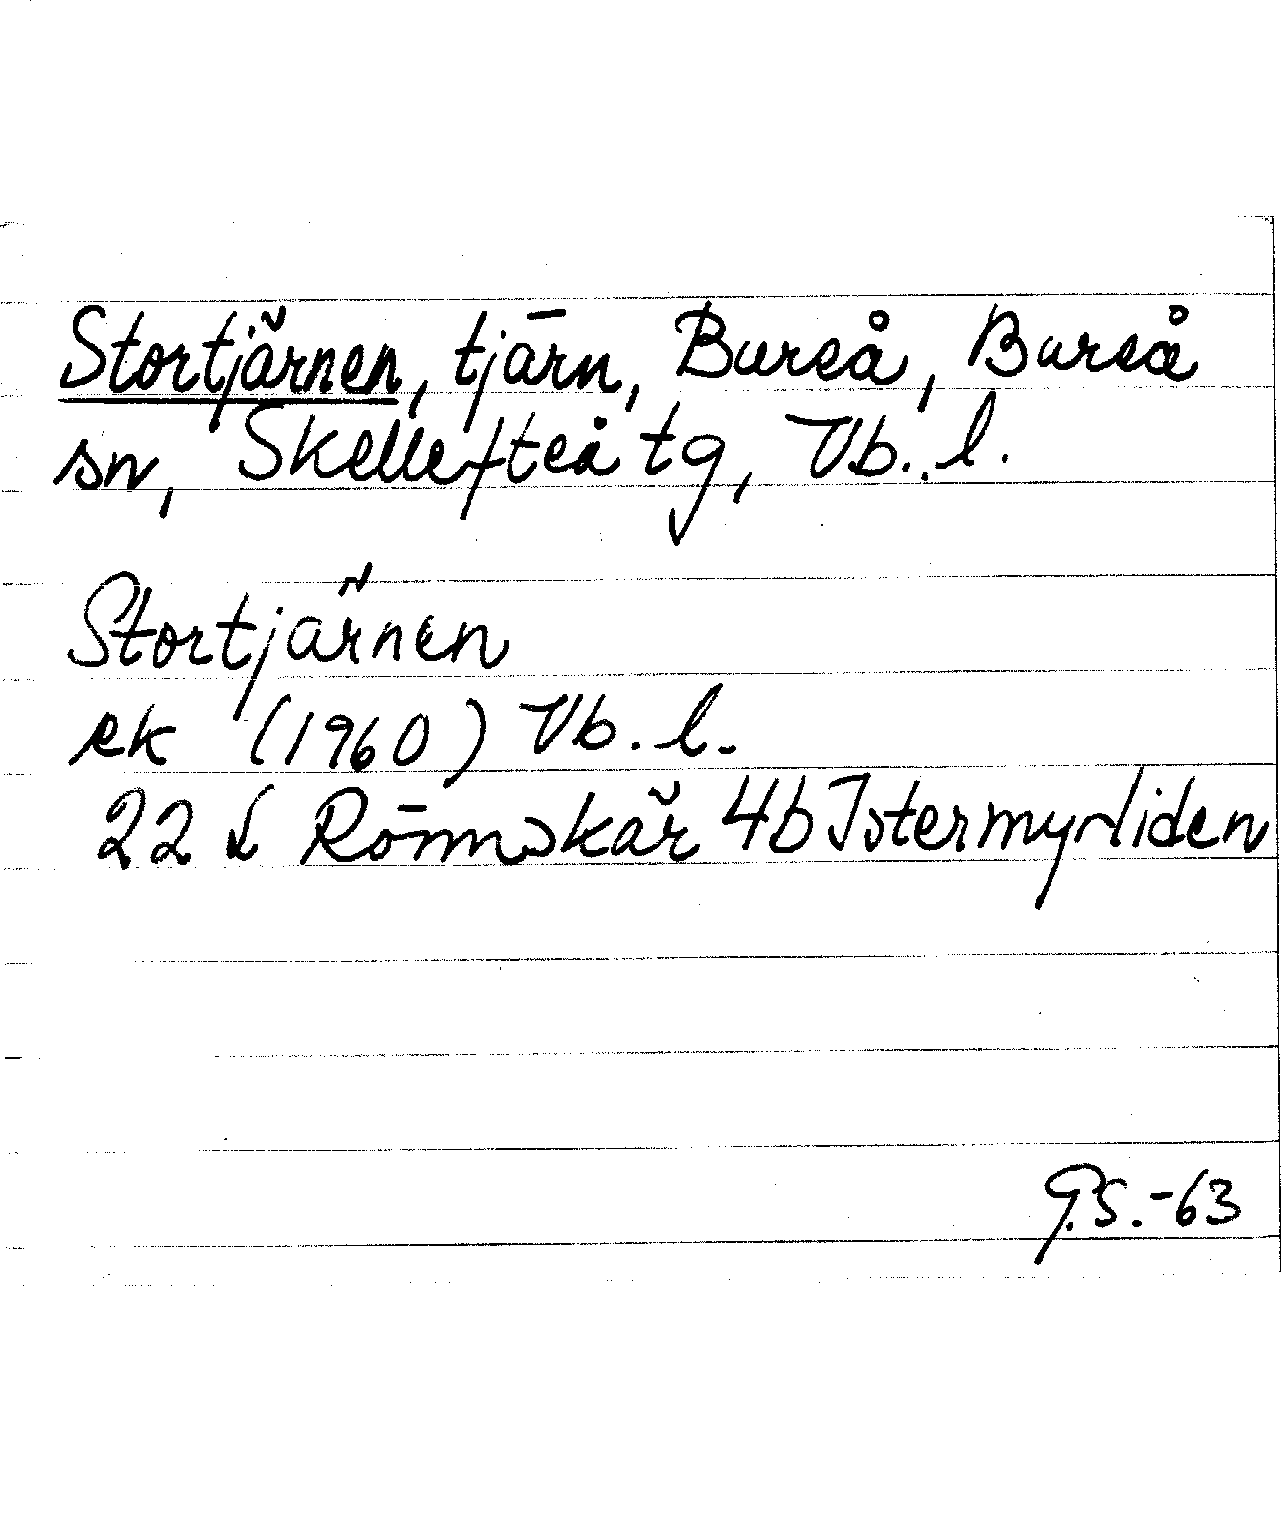 Stortjärnen, tjärn, Bureå, Bureå
sn, Skellefteå tg, Vb. l.
Stortjärnen
ek (1960) Vb. l.
22 L Rönnskär 4b Istermyrliden
G.S. -63